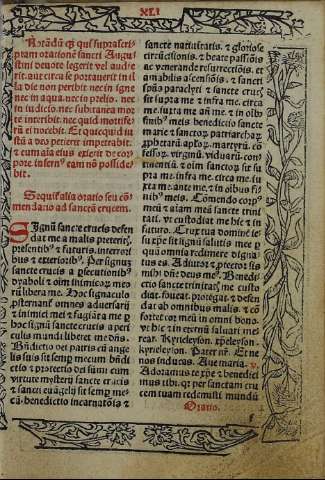 XLI
Notādū ꝙ qui suprascri
ptam orationē sancti Augu
stini deuote legerit vel audie
rit. aut circa se portauerit in il
la die non peribit nec in igne
nec in aqua. nec in prelio. nec
in iudicio nec subitanea mor
te interibit. nec quid mortife
rū ei nocebit. Et quecquid iu
stū a deo petierit impetrabit.
et cum aīa eius exierit de cor
pore infernꝰ eam nō posside
bit.
Sequitr alia oratio seu cōm
mendatio ad sanctā crucem.
Signū sancte crucis defen
dat me a malis preteritꝭ,
presentibꝰ et futuris. interiori
bus et exterioribꝰ. Per signuꝫ
sancte crucis a psecutionibꝰ
dyaboli et oīm inimicoꝝ meo
rū libera me. Hoc signaculo
psternant omnes aduersarij
et inimici mei et fugiāt a me p
hoc signū sancte crucis a peri
culis mundi liberet me dn̄s.
Bn̄dictio dei patris cū ange
lis suis sit semp mecum bn̄di
ctio et protectio dei summi cum
virtute mysterij sancte crucis
et sancti euāgelij sit semp me
cū. benedictio incarnatōis et
sancte natiuitatis. et gloriose
circūcisionis. et beate passiōis
ac venerande resurrectiōis. et
amabilis ascensiōis. et sancti
spūs paracliti et sancte crucꝭ
sit supra me et infra me. circa
me. iuxta me añ me. et in oībus
finibꝰ meis. benedictio sancte
marie et sanctoꝝ patriarchaꝝ.
pphetarū. aptoꝝ. martyrū. cō
fessoꝝ. virginū. viduarū. con
tinentiū et oīm sanctoꝝ sit su
pra me. infra me. circa me. iu
xta me. ante me. et in oībus fi
nibꝰ meis. Cōmendo corpꝰ
meū et aīam meā sancte trini
tati. vt custodiat me hic et in
futuro. Crux tua domine ie
su xp̄e sit signū salutis mee p
quā omnia redimere digna
tus es. Adiutor et protector sis
mihi dn̄e deus meꝰ. Benedi
ctio sancte trinitatꝭ me custo
diat. foueat. protegat. et defen
dat ab omnibus malis. et cō
fortet cor meū in omni bono.
vt hic et in eternū saluari me
rear. Kyrieleyson. xp̄eleyson.
kyrieleyson. Pater nr̄. Et ne
nos inducas. Aue maria. v.
Adoramus te xp̄e et benedici
mus tibi. qr per sanctam cru
cem tuam redemisti mundū
Oratio.
f